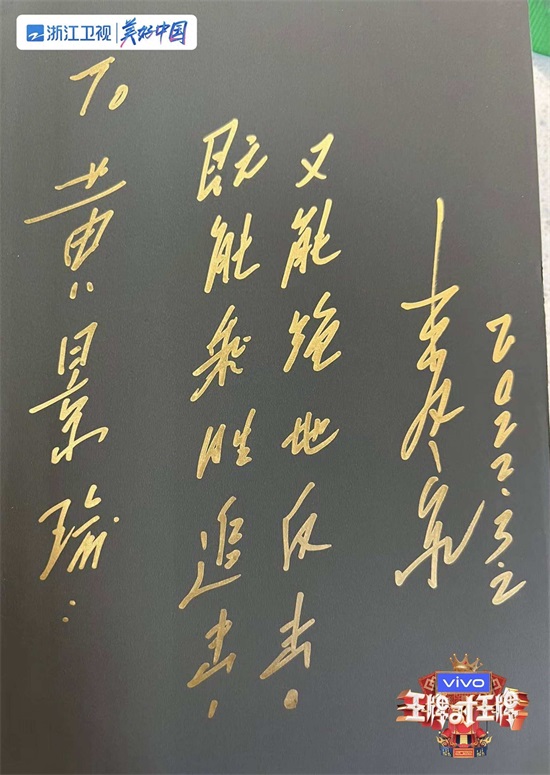 浙江卫视 美好中国
To
黄景瑜:
既能乘胜追击!
又能绝地反击!
2022.3.2
vivo
王牌对王牌